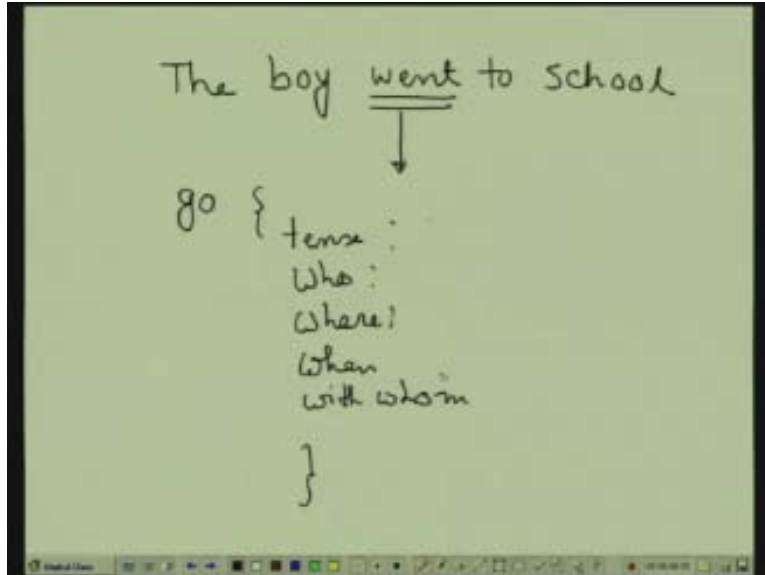 The boy went to school
go {
tense :
Who :
Where :
When
with whom
}